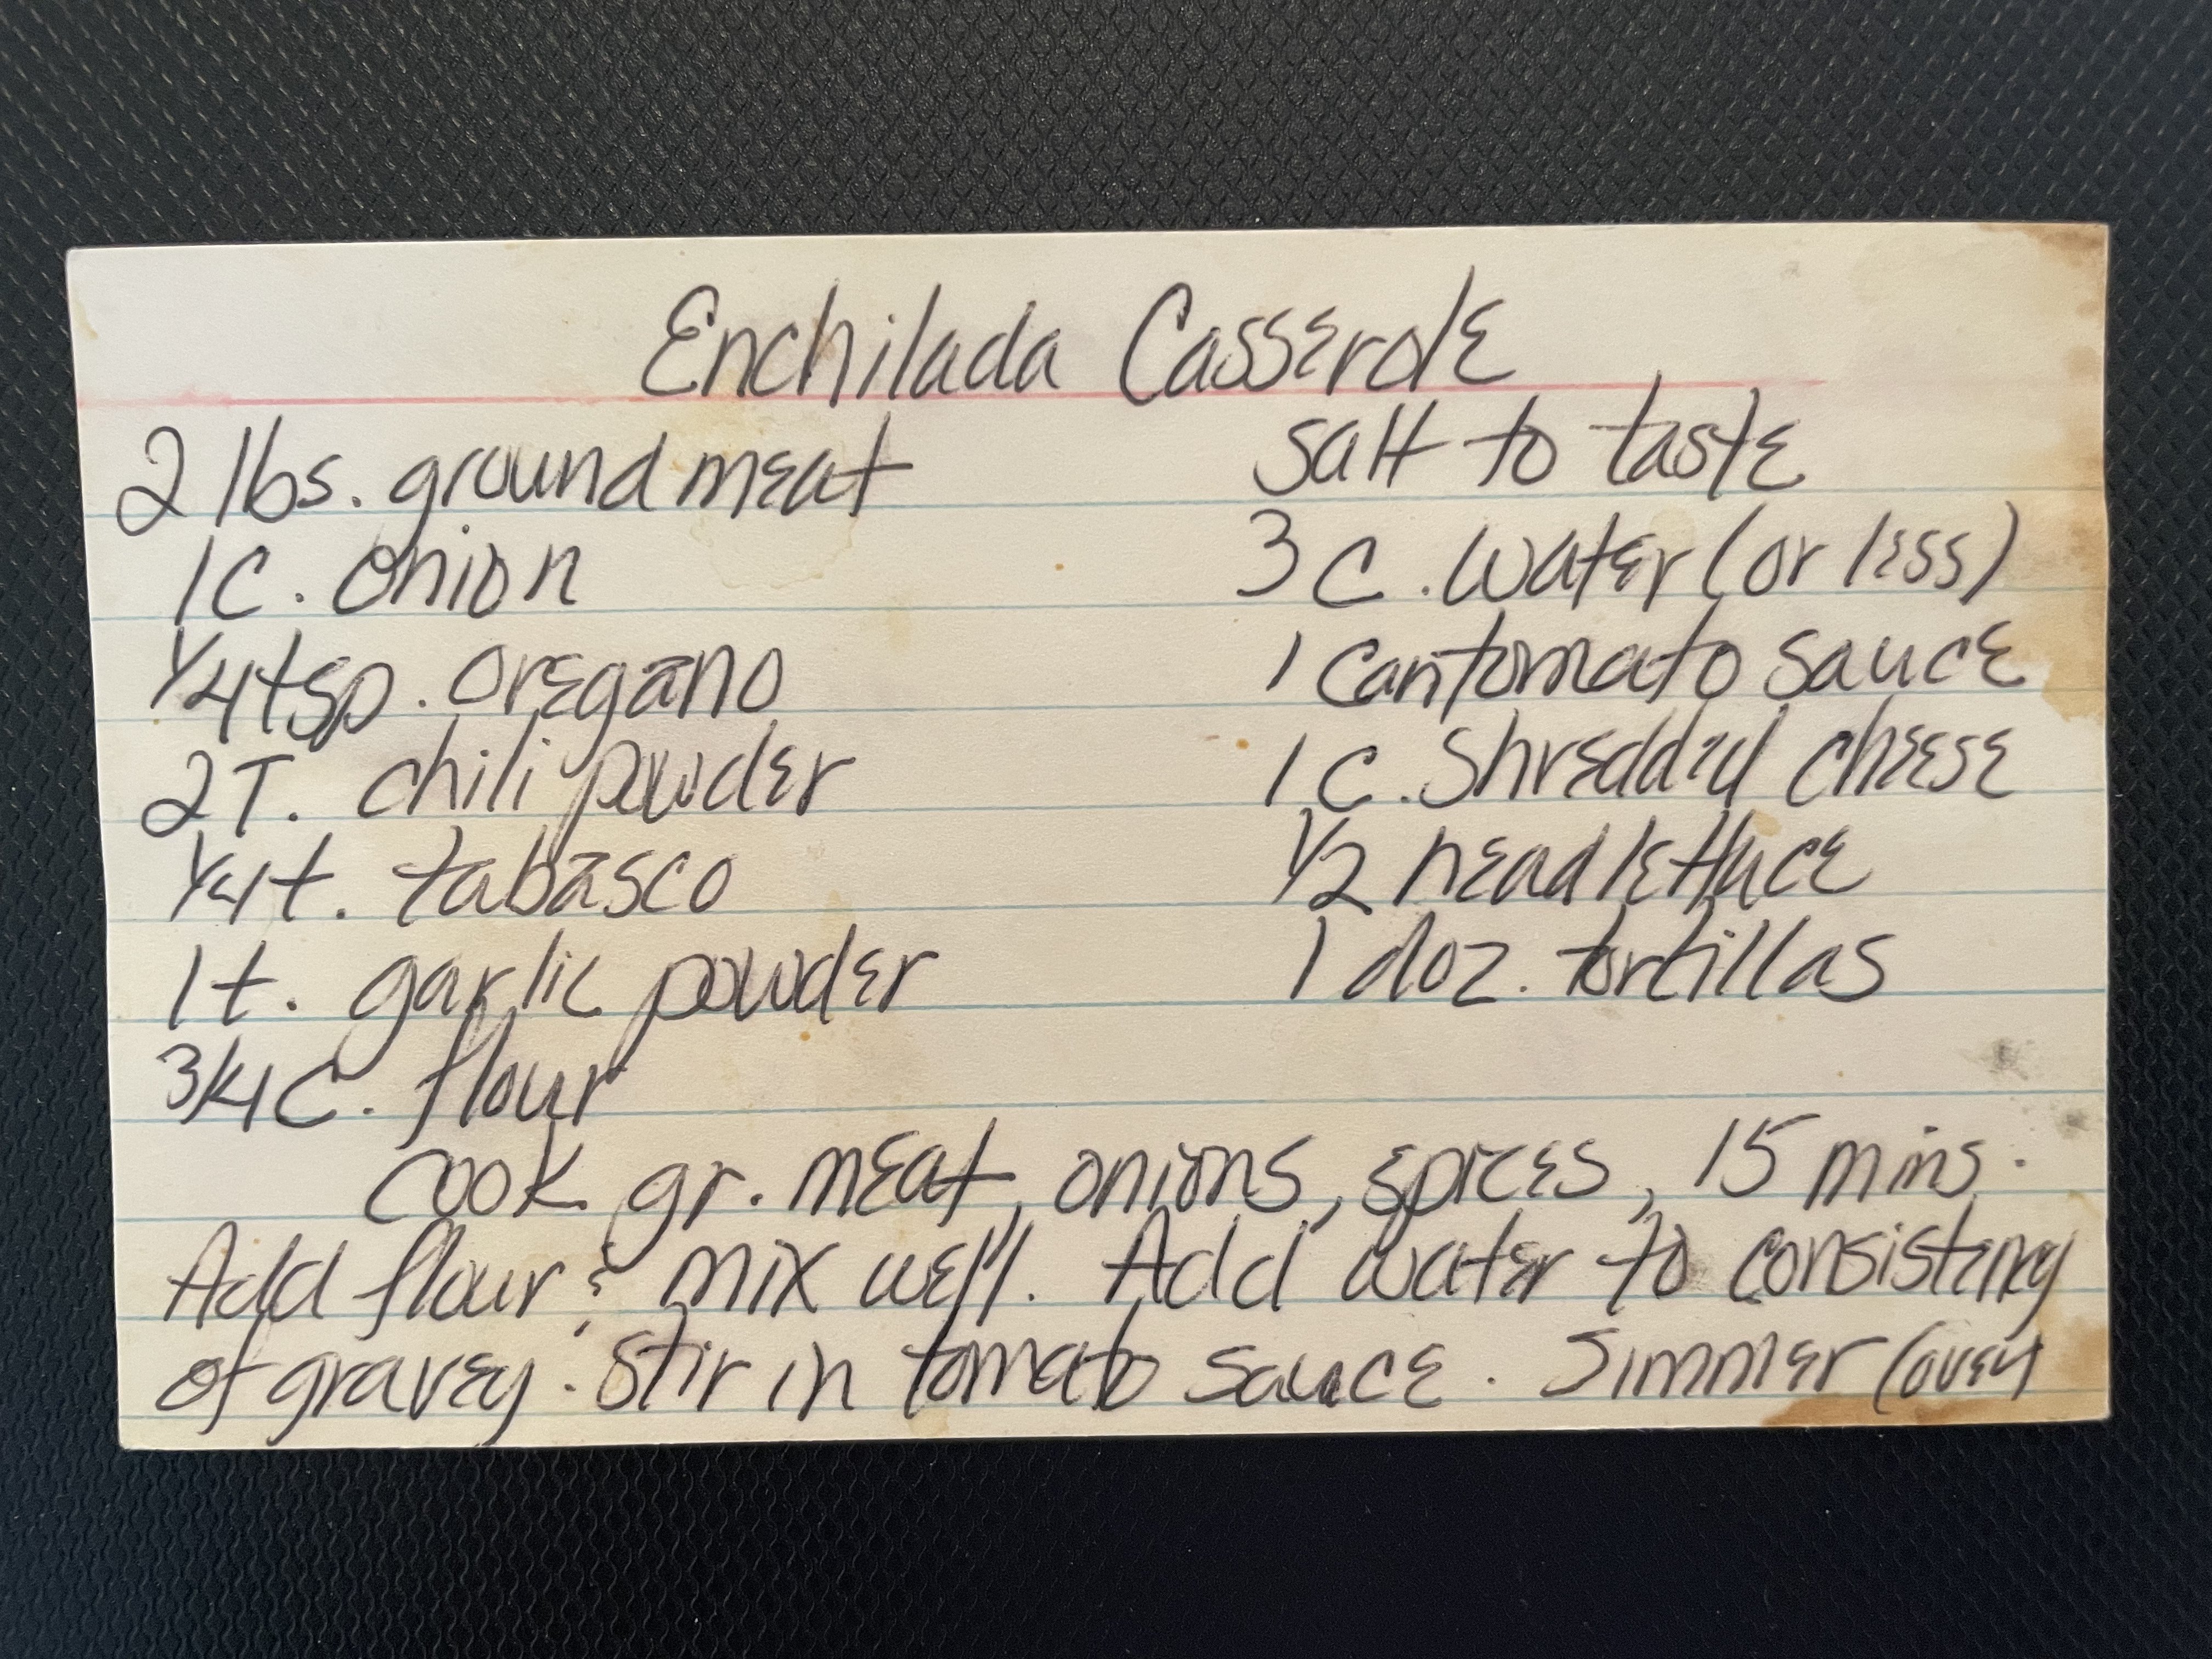 Enchilada Casserole
2 lbs. ground meat
1 C. onion
1/4 tsp. oregano
2 T. chili powder
1/4 t. tabasco
1 t. garlic powder
3/4 C. flour
salt to taste
3 C. water (or less)
1 can tomato sauce
1 C. shredded cheese
1/2 head lettuce
1 doz. tortillas
Cook gr. meat, onions, spices, 15 mins.
Add flour & mix well. Add water to consistency
of gravey. Stir in tomato sauce. Simmer (over)